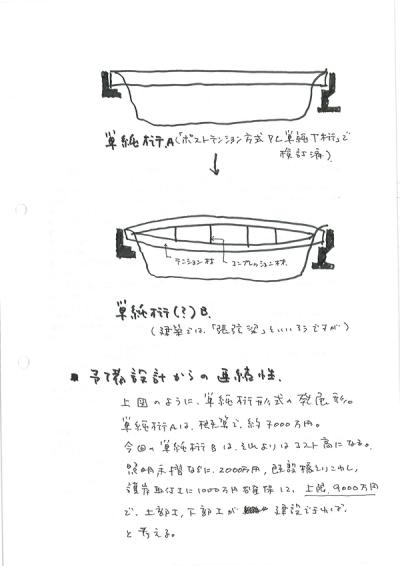 単純桁A(「ポストテンション方式PC単純T桁」で
検討済)
テンション材
コンプレッション材
単純桁(?)B.
(建築では、「張弦梁」というそうですが)
■予備設計からの連続性.
上図のように、単純桁形式の発展形。
単純桁Aは、概算で、約7000万円。
今回の単純桁Bは、それよりはコスト高になる。
照明、末摺などに、2000万円、既設橋とりこわし、
護岸取付工に1000万円を確保して、上限、9000万円
で、上部工、下部工が 建設できれば
と考える。